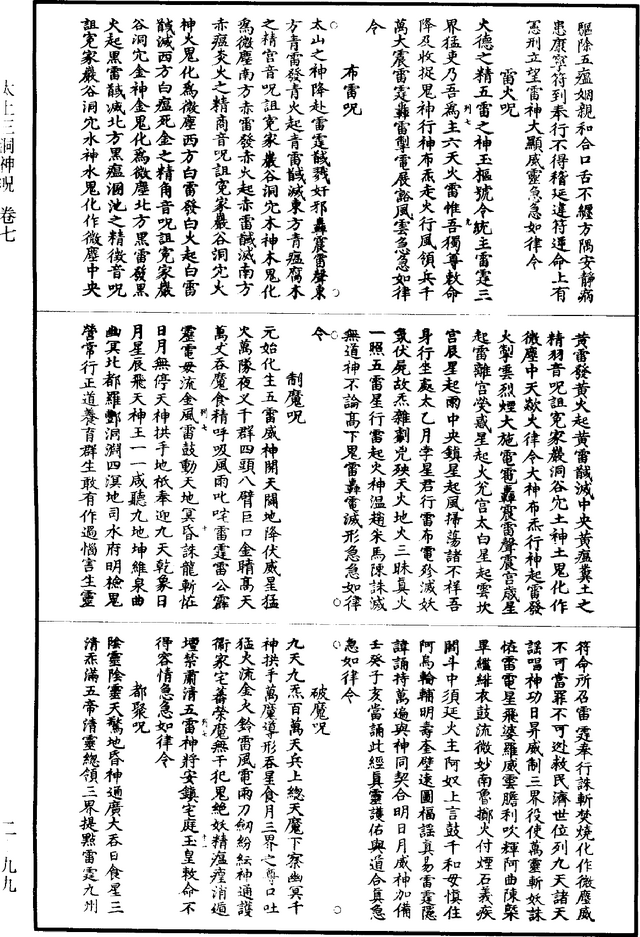 驅除五瘟姻親和合口舌不纏方隅安靜病
患康寧符到奉行不得稽延違符逆命上有
憲刑立望雷神大顯威靈急急如律令
雷火呪
火德之精五雷之神玉樞號令統主雷霆三
界猛吏乃吾為主六天火雷惟吾獨尊敕命
降臨收捉鬼神行神布炁走火行風領兵千
萬大震雷霆轟雷掣電展豁風雲急急如律
令
布雷呪
太山之神降赴雷霆馘戮奸邪轟震雷聲東
方青雷發青火起青雷馘滅東方青瘟腐木
之精宮音呪詛寃家巖谷洞穴木神木鬼化
為微塵南方赤雷發赤火起赤雷馘滅南方
赤瘟炎火之精商音呪詛寃家巖谷洞穴火
神火鬼化為微塵西方白雷發白火起白雷
馘滅西方白瘟死金之精角音呪詛寃家巖
谷洞穴金神金鬼化為微塵北方黑雷發黑
火起黑雷馘滅北方黑瘟溷池之精徵音呪
詛寃家巖谷洞穴水神水鬼化作微塵中央
黃雷發黃火起黃雷馘滅中央黃瘟糞土之
精羽音呪詛寃家巖洞谷穴土神土鬼化作
微塵中天歘火律令大神布炁行神起雷發
火掣雲烈煙大施雷電轟震雷聲震宮歲星
起雷離宮熒惑星起火兌宮太白星起雲坎
宮辰星起雨中央鎮星起風掃蕩諸不祥吾
身行坐處太乙月孛星君行雷布電殄滅妖
氛伏屍故炁雜劉兇殃天火地火三昧真火
一照五雷星行雷起火神溫趙朱馬陳誅滅
無道神不論高下鬼雷轟電滅形急急如律
令
制魔呪
元始化生五雷威神開天闢地降伏威星猛
火萬隊夜叉千群四頭八臂巨口金睛高天
萬丈吞魔食精呼吸風雨叱咤雷霆雷公霹
靂電母流金風雷鼓動天地冥昏誅龍斬怪
日月無停天神拱手地祇奉迎九天乾象日
月星辰飛天神王一一咸聽九地坤維泉曲
幽冥北都羅酆洞淵四溟地司水府明檢鬼
營常行正道養育群生敢有作過惱害生靈
符命所召雷霆奉行誅斬焚燒化作微塵威
不可當罪不可逃救民濟世位列九天諸天
謡唱神功日昇威制三界役使萬靈斬妖誅
怪雷電星飛婆羅威雲膽利吹輝阿曲陳槩
畢繼緋衣鼓流微妙南魯擲火付煙石義疾
開斗中須延火主阿奴上言鼓千和毋慎住
阿烏輪輔明壽奎壁速圖福謡真易雷霆隱
諱誦持萬遍與神同契合明日月威神加備
壬癸子亥當誦此經真靈護佑與道合真急
急如律令
破魔呪
九天九炁百萬天兵上總天魔下察幽冥千
神拱手萬魔導形吞星食月三界之尊口吐
猛火流金火鈴雷風電雨刀劒紛紜神通護
衛家宅善榮魔無干犯鬼絕妖精瘟瘴消遁
壇禁肅清五雷神將安鎮宅庭玉皇敕命不
得容情急急如律令
都聚呪
陰靈陰靈天驚地昏神通廣大吞日食星三
清炁滿五帝清靈總領三界提點雷霆九州
太上三洞神呪 卷七
二 九九